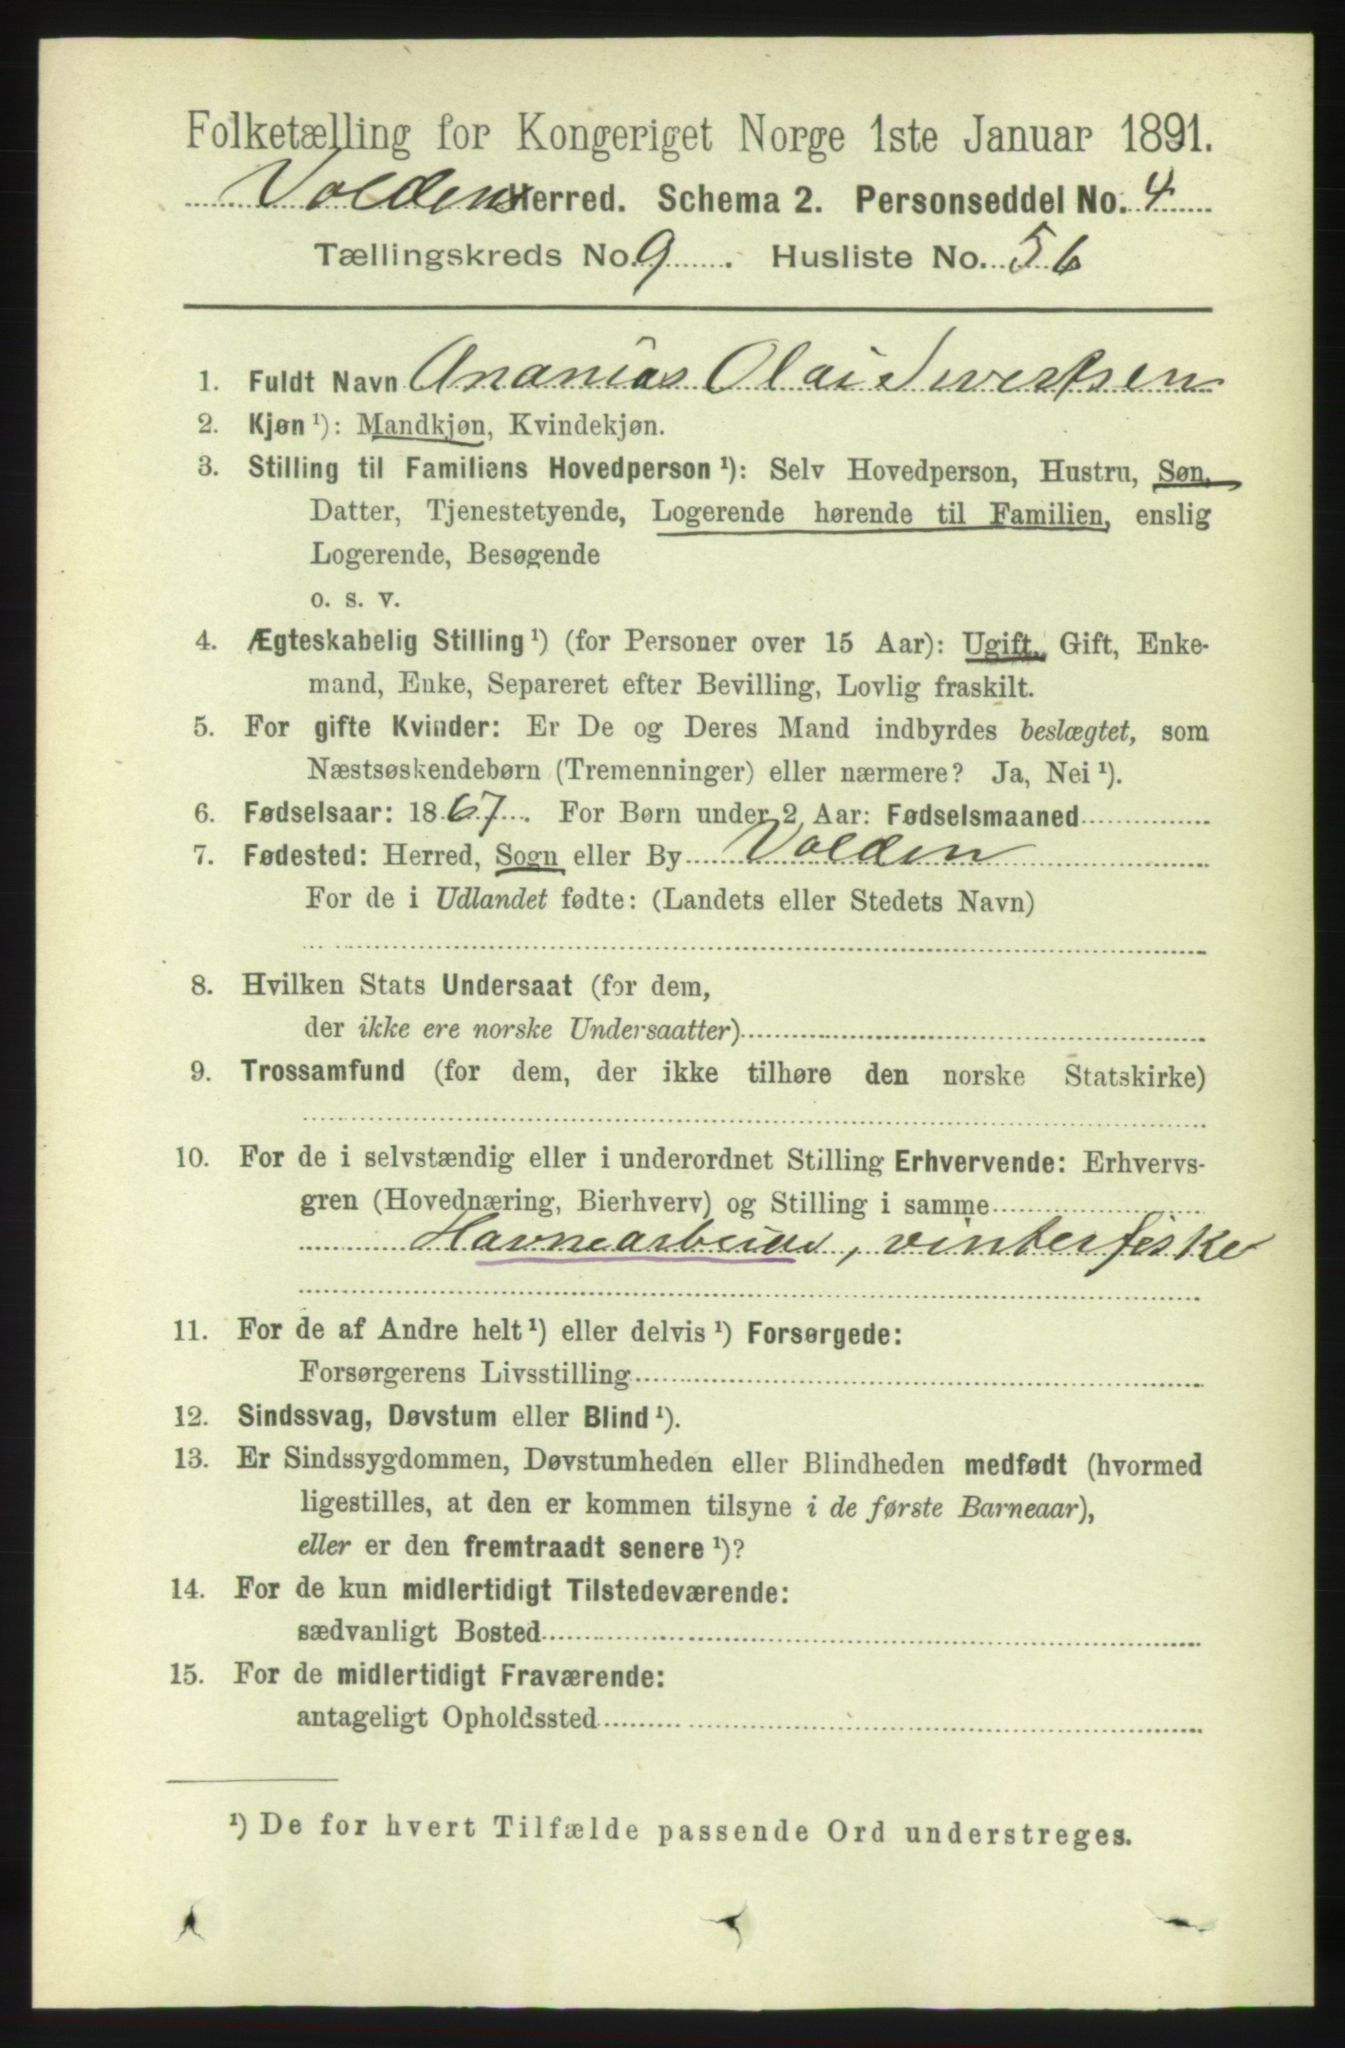 Folketælling for Kongeriget Norge 1ste Januar 1891.
Voldens Herred. Schema 2. Personseddel No. 4
Tællingskreds No. 9. Husliste No. 56
1. Fuldt Navn Ananias Olai Sivertsen
2. Kjøn ¹): Mandkjøn, Kvindekjøn.
3. Stilling til Familiens Hovedperson ¹): Selv Hovedperson, Hustru, Søn,
Datter, Tjenestetyende, Logerende hørende til Familien, enslig
Logerende, Besøgende
o. s. v.
4. Ægteskabelig Stilling ¹) (for Personer over 15 Aar): Ugift, Gift, Enke-
mand, Enke, Separeret efter Bevilling, Lovlig fraskilt.
5. For gifte Kvinder: Er De og Deres Mand indbyrdes beslægtet, som
Næstsøskendebørn (Tremenninger) eller nærmere? Ja, Nei ¹).
6. Fødselsaar: 1867. For Børn under 2 Aar: Fødselsmaaned
7. Fødested: Herred, Sogn eller By Volden
For de i Udlandet fødte: (Landets eller Stedets Navn)
8. Hvilken Stats Undersaat (for dem,
der ikke ere norske Undersaatter)
9. Trossamfund (for dem, der ikke tilhøre den norske Statskirke)
10. For de i selvstændig eller i underordnet Stilling Erhvervende: Erhvervs-
gren (Hovednæring, Bierhverv) og Stilling i samme
Havnearbeide, vinterfiske
11. For de af Andre helt ¹) eller delvis ¹) Forsørgede:
Forsørgerens Livsstilling
12. Sindssvag, Døvstum eller Blind ¹).
13. Er Sindssygdommen, Døvstumheden eller Blindheden medfødt (hvormed
ligestilles, at den er kommen tilsyne i de første Barneaar),
eller er den fremtraadt senere ¹)?
14. For de kun midlertidigt Tilstedeværende:
sædvanligt Bosted
15. For de midlertidigt Fraværende:
antageligt Opholdssted
¹) De for hvert Tilfælde passende Ord understreges.